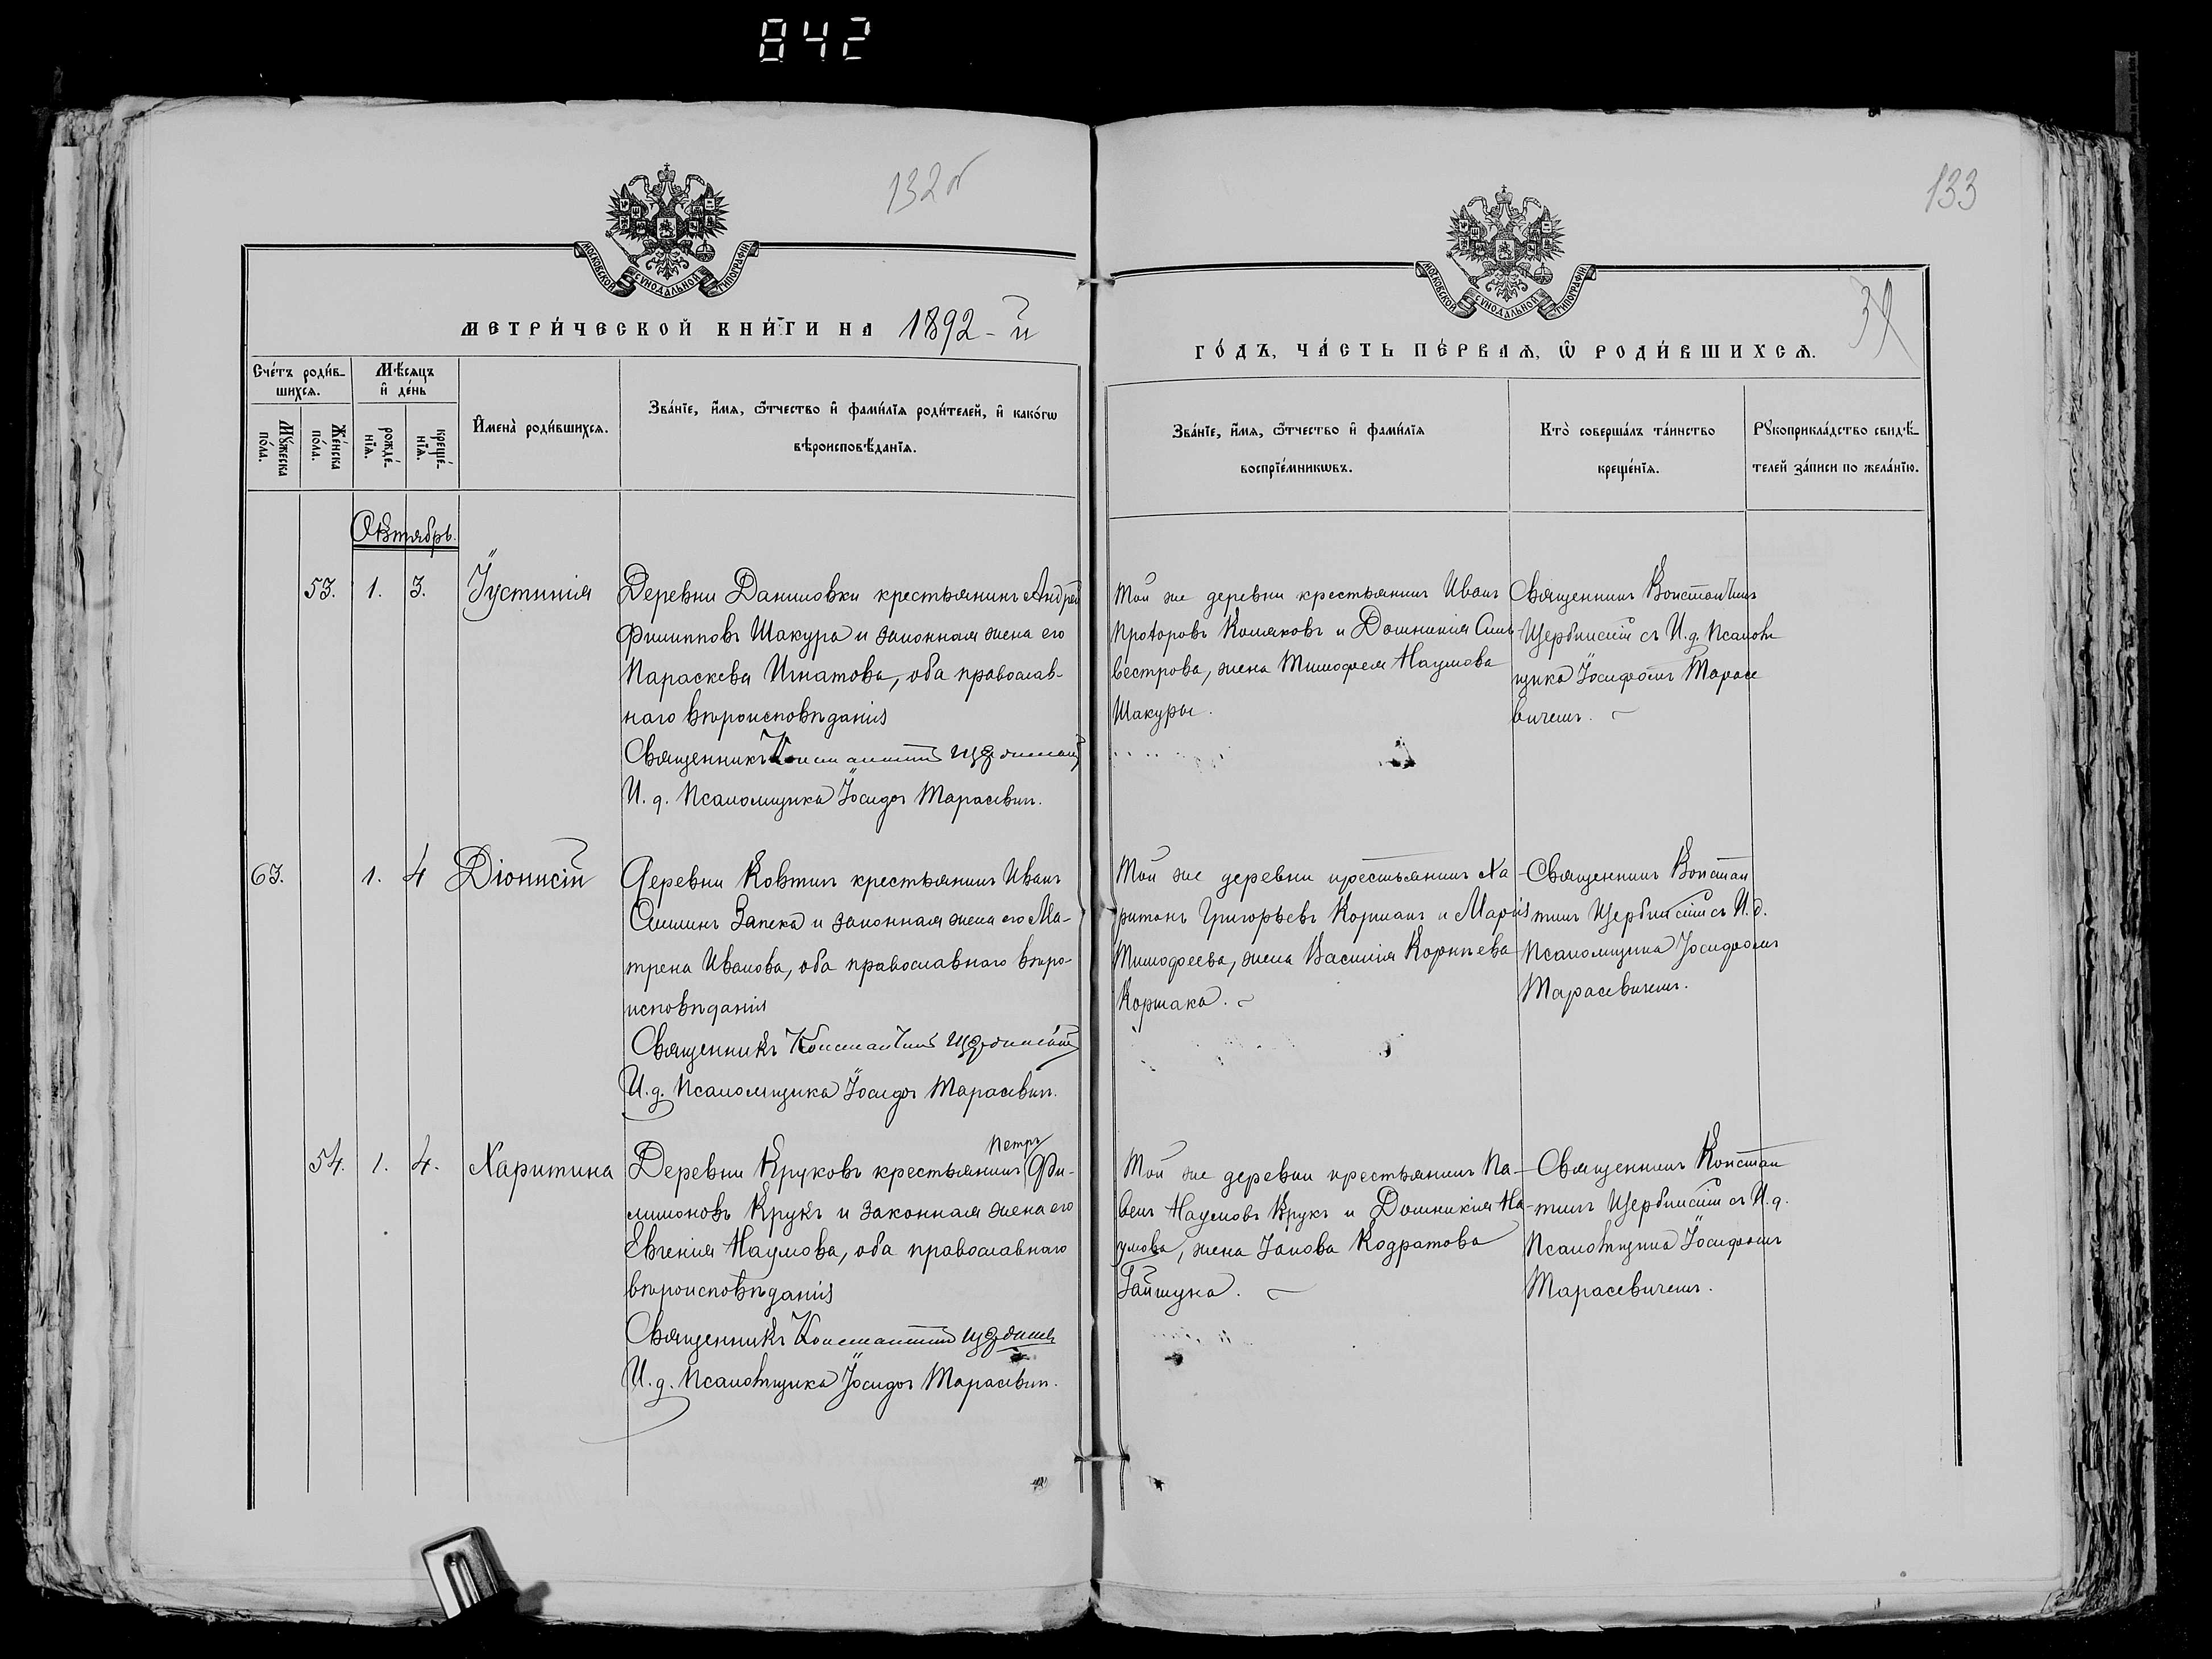 842
132об
133
МОСКОВСКОЙ СѴНОДАЛЬНОЙ ТИПОГРАФІИ
МОСКОВСКОЙ СѴНОДАЛЬНОЙ ТИПОГРАФІИ
МЕТРИ́ЧЕСКОЙ КНИ́ГИ НА 1892-й
ГО́ДЪ, ЧА́СТЬ ПЕ́РВАѦ, Ѽ РОДИ́ВШИХСѦ.
Сче́тъ роди́в-
шихсѧ.
Мꙋ́жеска
по́ла.
Же́нска
по́ла.
Мѣ́сѧцъ
и҆ де́нь
рожде́-
нїѧ.
креще́-
нїѧ.
И҆мена̀ роди́вшихсѧ.
Зва́нїе, и҆́мѧ, ѻ҆́тчество и҆ фами́лїѧ роди́телей, и҆ како́гѡ
вѣроисповѣ́данїѧ.
Зва́нїе, и҆́мѧ, ѻ҆́тчество и҆ фами́лїѧ
воспрїе́мникѡвъ.
Кто̀ соверша́лъ та́инство
креще́нїѧ.
Рꙋкоприкла́дство свидѣ́-
телей за́писи по жела́нїю.
Октябрь.
53. 1. 3. Іустинія
Деревни Даниловки крестьянинъ Андрей
Филипповъ Шакура и законная жена его
Параскева Игнатова, оба православ-
наго вѣроисповѣданія
Священникъ Константинъ Щербинскій
И. д. Псаломщика Іосифъ Тарасевич.
Той же деревни крестьянинъ Иванъ
Поляковъ и Домникія Силь-
вестрова, жена Тимофея Наумова
Шакуры.
Священникъ Константинъ
Щербинскій съ И.д. Псалом
щика Іосифомъ Тарасе
вичемъ.
63. 1. 4 Діонисій
Деревни Ковтинъ крестьянинъ Иванъ
Запека и законная жена его Ма-
трена Иванова, оба православнаго вѣро-
исповѣданія
Священникъ Константинъ Щербинскій
И.д. Псаломщика Іосифъ Тарасевич.
Той же деревни крестьянинъ Ха-
ритонъ Григорьевъ и Марія
Тимофеева, жена Василія Корнѣева
Коржака.
Священникъ Констан
тинъ Щербинскій съ И.д.
Псаломщика Іосифомъ
Тарасевичемъ.
54. 1. 4. Харитина
Петръ
Деревни Круковъ крестьянинъ Фи-
лимоновъ Крукъ и законная жена его
Евгенія Наумова, оба православнаго
вѣроисповѣданія
Священникъ Константинъ Щербинскій
И.д. Псаломщика Іосифъ Тарасевич.
Той же деревни крестьянинъ Па-
велъ Наумовъ Крукъ и Домникія На-
умова, жена Іакова Кодратова
Гайшука.
Священникъ Констан
тинъ Щербинскій съ И.д.
Псаломщика Іосифомъ
Тарасевичемъ.